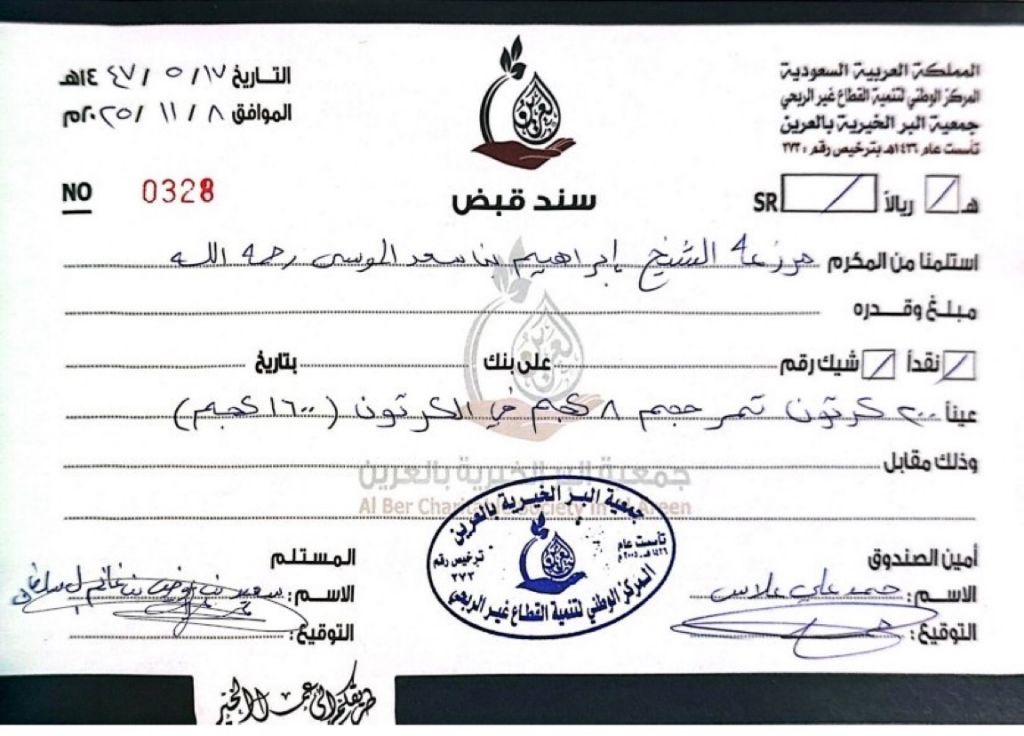 المملكة العربية السعودية
المركز الوطني لتنمية القطاع غير الربحي
جمعية البر الخيرية بالعرين
تأسست عام ١٤٢٦هـ بترخيص رقم : ٢٧٣
التاريخ ١٧ / ٥ / ١٤٤٧هـ
الموافق ٨ / ١١ / ٢٠٢٥م
العرين
سند قبض
NO 0328
هـ ريالاً SR
استلمنا من المكرم مزرعة الشيخ إبراهيم بن سعد الموسى رحمه الله
مبلغ وقدره
نقداً شيك رقم على بنك بتاريخ
عيناً ٢٠٠ كرتون تمر حجم ٨ كجم في الكرتون (١٦٠٠ كجم)
وذلك مقابل
جمعية البر الخيرية بالعرين
Al Ber Charitable Society in Al Areen
أمين الصندوق
الاسم : حمد علي علاس
التوقيع :
المستلم
الاسم : سعيد بن
التوقيع :
جمعية البر الخيرية بالعرين
تأسست عام
ترخيص رقم
٢٧٣
المركز الوطني لتنمية القطاع غير الربحي
طريقكم إلى عمل الخير